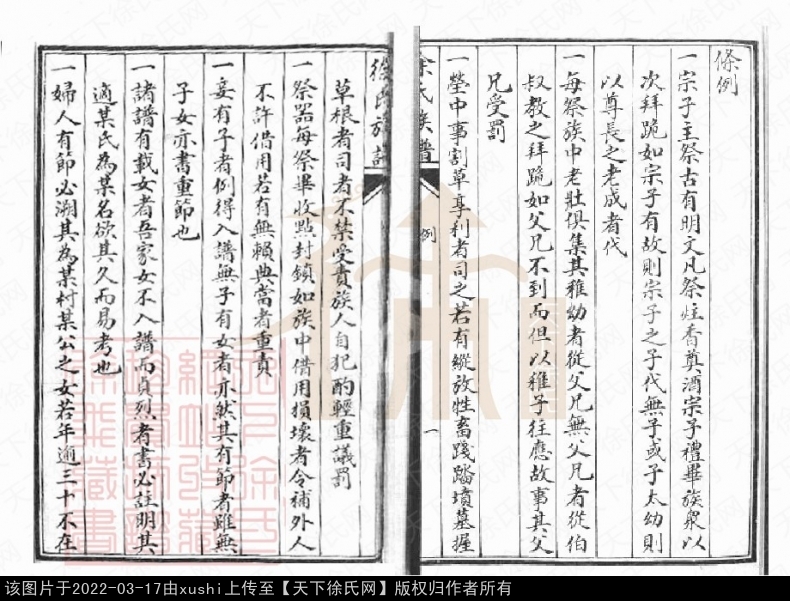 條例
一宗子主祭古有明文凡祭炷香奠酒宗子禮畢族眾以
次拜跪如宗子有故則宗子之子代無子或子太幼則
以尊長之老成者代
一每祭族中老壯俱集其稚幼者從父兄無父兄者從伯
叔教之拜跪如父兄不到而但以稚子往應故事其父
兄受罰
一塋中事割草專利者司之若有縱放牲畜踐踏墳墓握
徐氏族譜
例
一
徐氏族譜
草根者司者不禁受責族人自犯酌輕重議罰
一祭器每祭畢收點封鎖如族中借用損壞者令補外人
不許借用若有無賴典當者重責
一妾有子者例得入譜無子有女者亦然其有節者雖無
子女亦書重節也
一諸譜有載女者吾家女不入譜而貞烈者書必註明其
適某氏為某名欲其久而易考也
一婦人有節必溯其為某村某公之女若年逾三十不在
该图片于2022-03-17由xushi上传至【天下徐氏网】版权归作者所有